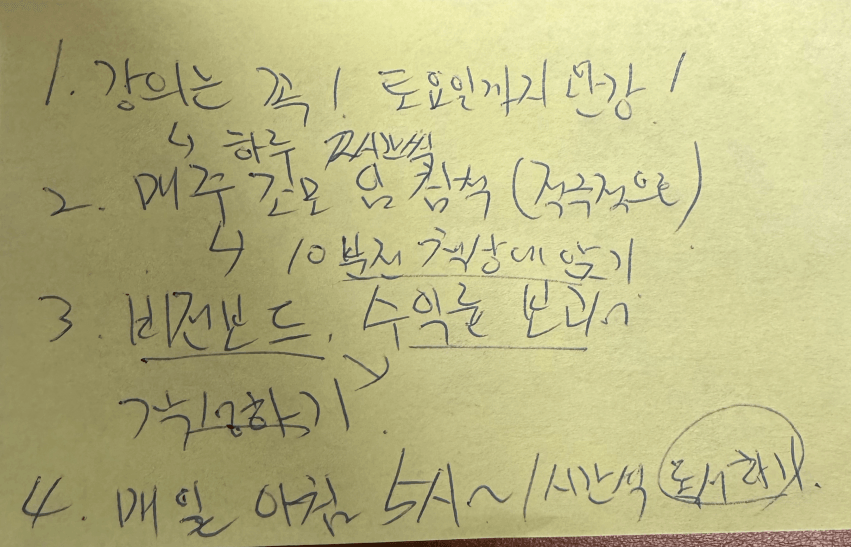 1. 강의는 꼭! 토요일까지 완강!
↳ 하루 2시간씩
2. 매주 조모임 참석 (적극적으로)
↳ 10분전 책상에 앉기
3. 비전보드, 수익률 보고
하기
4. 매일 아침 5시~1시간씩 독서하기.